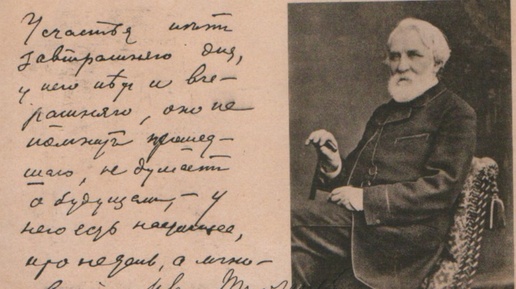 У счастья нѣтъ
завтрашняго дня,
у него нѣт и вче-
рашняго, оно не
помнитъ прошед-
шаго, не думаетъ
о будущемъ, – у
него есть настоящее,
и то не день, а мгно-